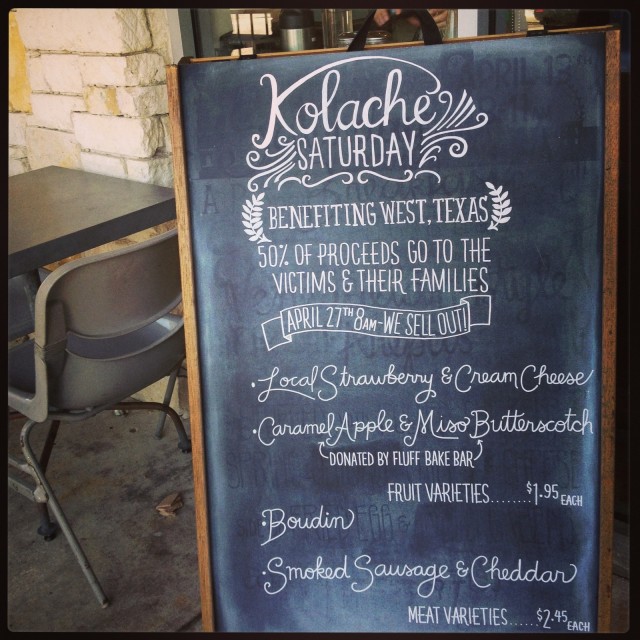 Kolache
SATURDAY
BENEFITING WEST, TEXAS
50% OF PROCEEDS GO TO THE
VICTIMS & THEIR FAMILIES
APRIL 27TH 8AM-WE SELL OUT!
• Local Strawberry & Cream Cheese
• Caramel Apple & Miso Butterscotch
DONATED BY FLUFF BAKE BAR
FRUIT VARIETIES........$1.95 EACH
• Boudin
• Smoked Sausage & Cheddar
MEAT VARIETIES......$2.45 EACH